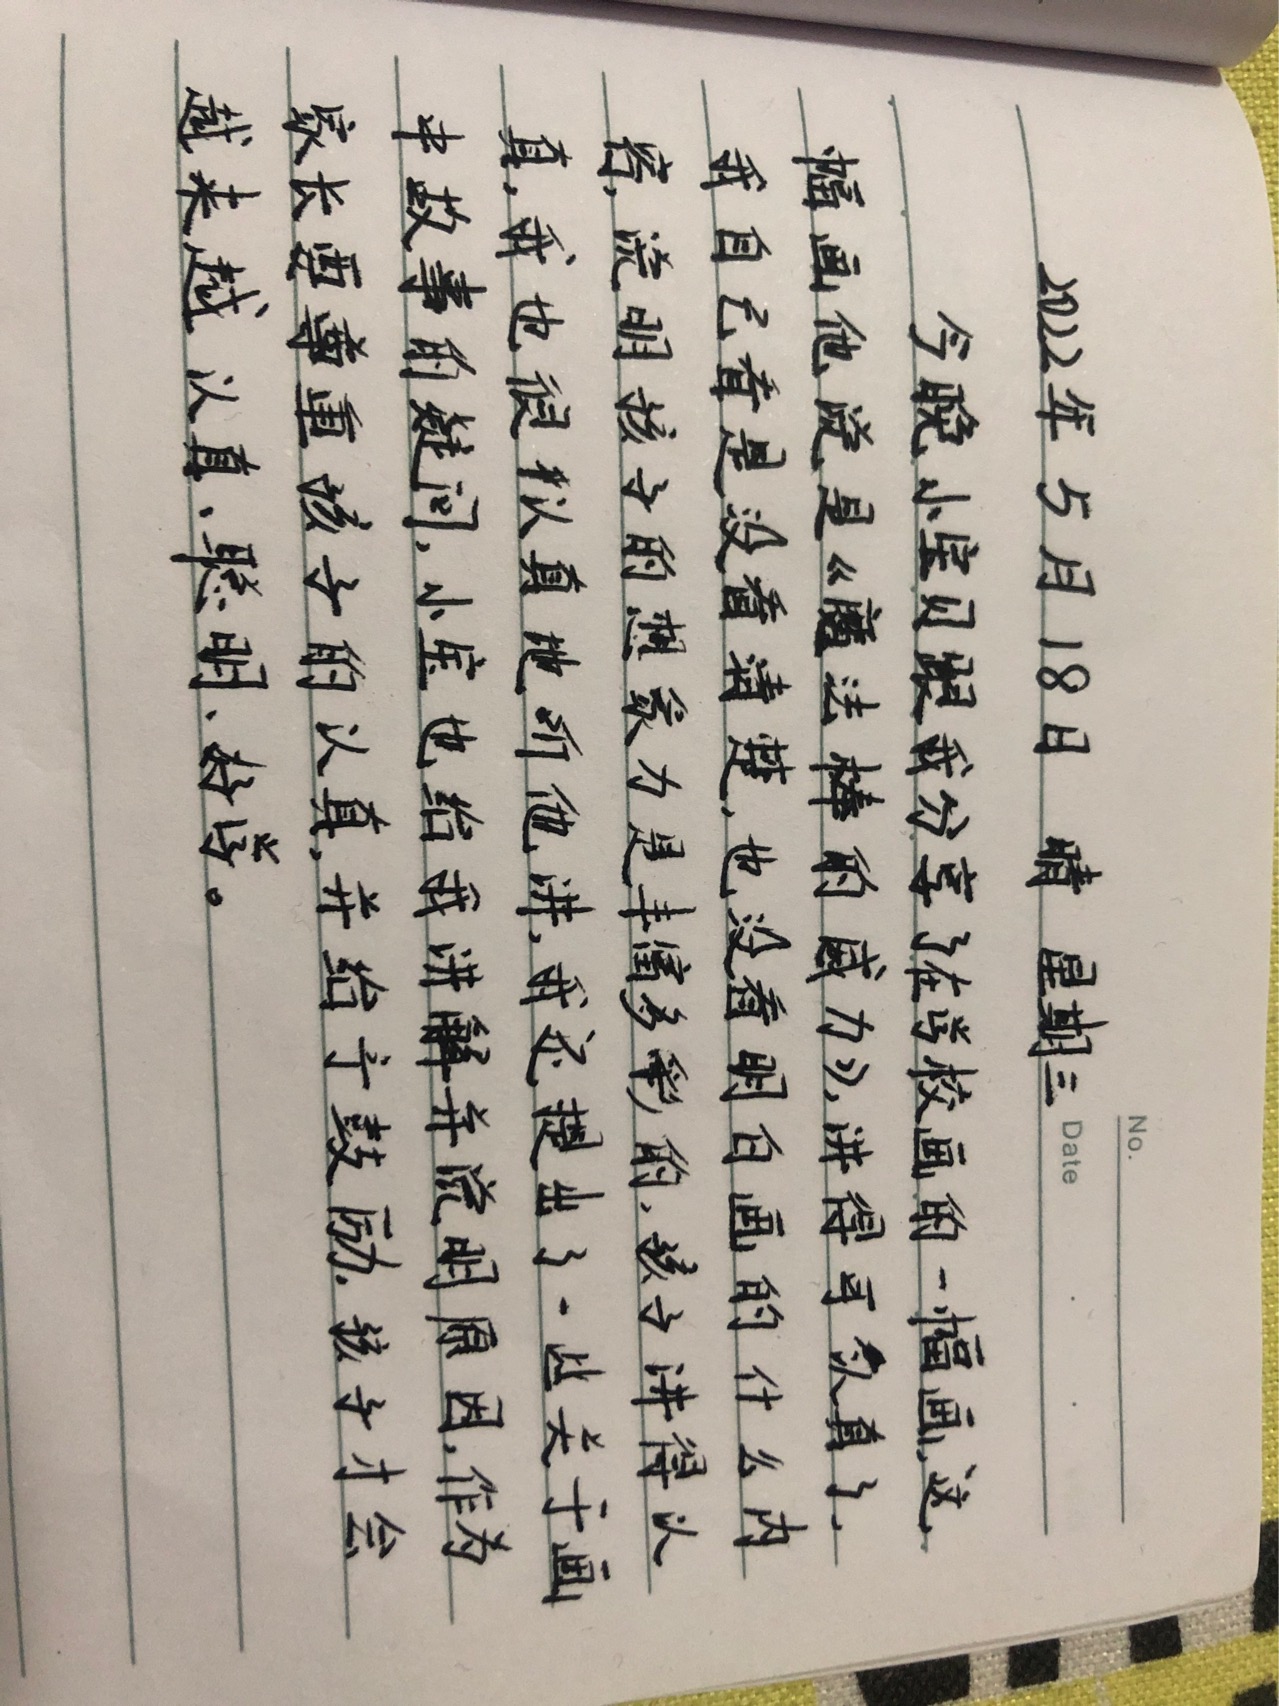 No.
Date
2022年5月18日 晴 星期三
今晚小宝贝跟我分享了在学校画的一幅画,这
幅画他说是《魔法棒的威力》,讲得可认真了.
我自己看是没看清楚,也没看明白画的什么内
容,说明孩子的想象力是丰富多彩的,孩子讲得认
真,我也很认真地听他讲,我还提出了一些关于画
中故事的疑问,小宝也给我讲解并说明原因,作为
家长要尊重孩子的认真,并给于鼓励.孩子才会
越来越认真、聪明、好学。